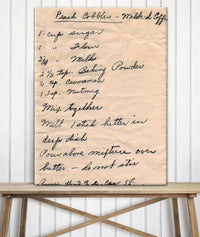 Peach Cobbler - 
1 cup sugar
1 " Flour
3/4 " Milk
2 1/2 tsp. Baking Powder
3/4 tsp. Cinnamon
1 tsp. Nutmeg
Mix together
Melt 1 stick butter in
deep dish
Pour above mixture over
butter - Do not stir